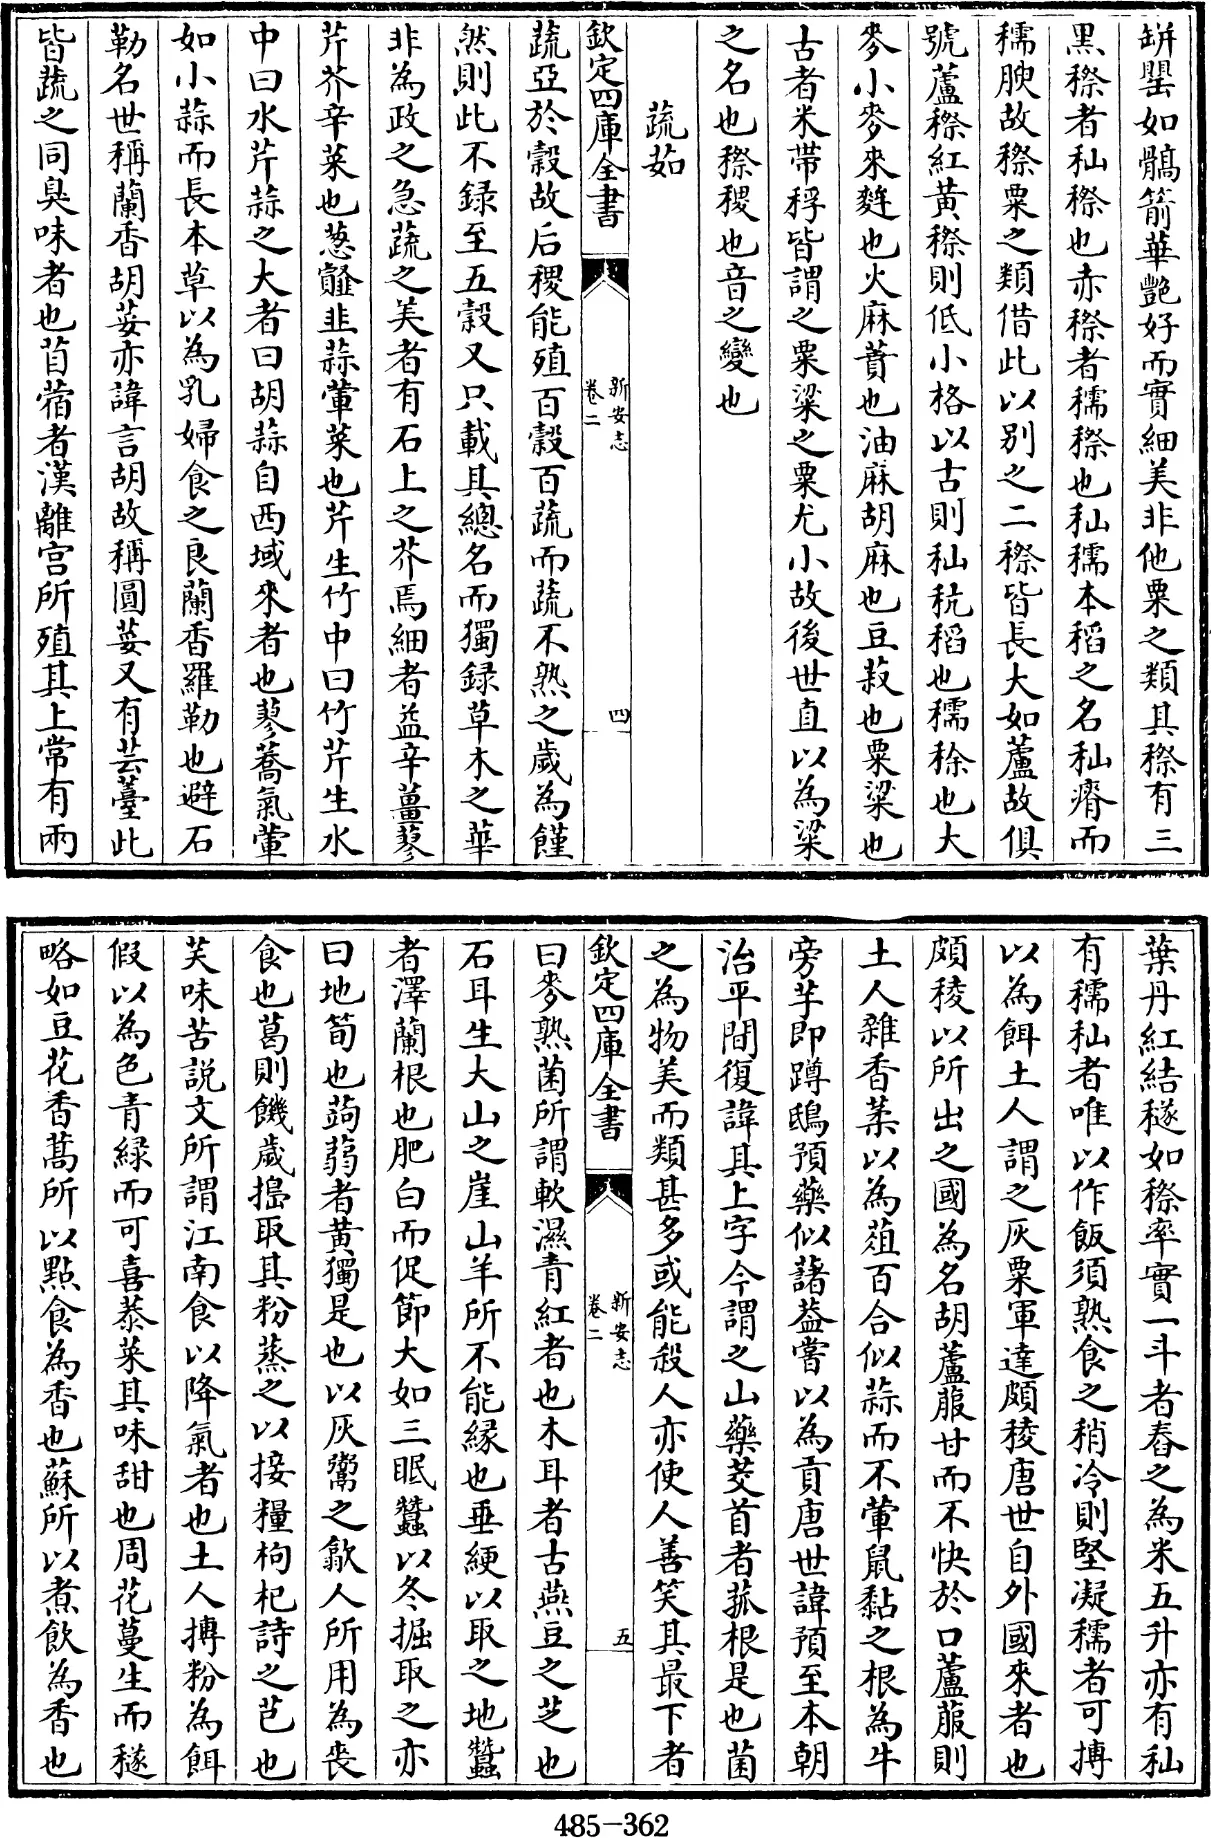 缾罌如鶻箭華艷好而實細美非他粟之類其穄有三
黒穄者秈穄也赤穄者穤穄也秈穤本稻之名秈瘠而
穤腴故穄粟之類借此以别之二穄皆長大如蘆故俱
號蘆穄紅黄穄則低小格以古則秈秔稻也穤稌也大
麥小麥來麰也火麻蕡也油麻胡麻也豆菽也粟粱也
古者米帶稃皆謂之粟粱之粟尤小故後世直以為粱
之名也穄稷也音之變也
蔬茹
欽定四庫全書
新安志
卷二
四
蔬亞於穀故后稷能殖百穀百蔬而蔬不熟之歲為饉
然則此不録至五穀又只載其總名而獨録草木之華
非為政之急蔬之美者有石上之芥焉細者益辛薑蓼
芹芥辛菜也葱韰韭蒜葷菜也芹生竹中曰竹芹生水
中曰水芹蒜之大者曰胡蒜自西域來者也蓼蕎氣葷
如小蒜而長本草以為乳婦食之良蘭香羅勒也避石
勒名世稱蘭香胡荽亦諱言胡故稱圓荽又有芸薹此
皆蔬之同臭味者也苜蓿者漢離宫所殖其上常有兩
葉丹紅結穟如穄率實一斗者舂之為米五升亦有秈
有穤秈者唯以作飯須熟食之稍冷則堅凝穤者可摶
以為餌土人謂之灰粟軍達頗稜唐世自外國來者也
頗稜以所出之國為名胡蘆菔甘而不快於口蘆菔則
土人雜香菜以為葅百合似蒜而不葷鼠黏之根為牛
旁芋即蹲鴟預藥似藷葢嘗以為貢唐世諱預至本朝
治平間復諱其上字今謂之山藥茭首者菰根是也菌
之為物美而類甚多或能殺人亦使人善笑其最下者
欽定四庫全書
新安志
卷二
五
曰麥熟菌所謂軟濕青紅者也木耳者古燕豆之芝也
石耳生大山之崖山羊所不能緣也垂綆以取之地蠶
者澤蘭根也肥白而促節大如三眠蠶以冬掘取之亦
曰地筍也蒟蒻者黄獨是也以灰鬻之歙人所用為喪
食也葛則饑歲搗取其粉蒸之以接糧枸杞詩之芑也
芙味苦説文所謂江南食以降氣者也土人摶粉為餌
假以為色青緑而可喜菾菜其味甜也周花蔓生而穟
略如豆花香蒿所以點食為香也蘇所以煮飲為香也
485-362